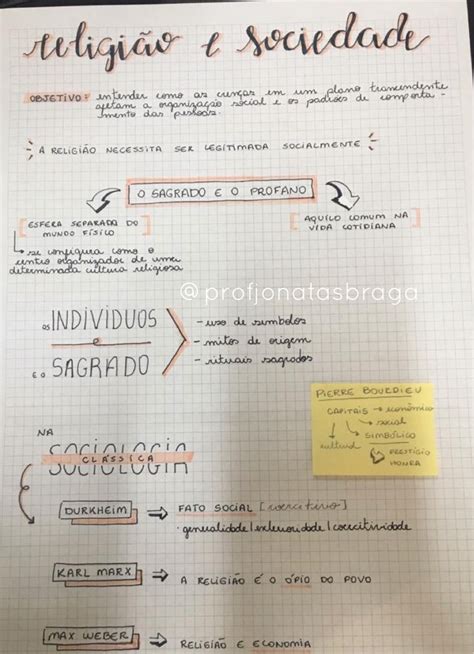 religião e sociedade
OBJETIVO: entender como as crenças em um plano transcendente
afetam a organização social e os padrões de comporta-
mento das pessoas.
A RELIGIÃO NECESSITA SER LEGITIMADA SOCIALMENTE
O SAGRADO E O PROFANO
ESFERA SEPARADA DO
MUNDO FÍSICO
se configura como o
centro organizador de uma
determinada cultura religiosa
AQUILO COMUM NA
VIDA COTIDIANA
@profjonatasbraga
os INDIVÍDUOS
e
e o SAGRADO
- uso de símbolos
- mitos de origem
- rituais sagrados
PIERRE BOURDIEU
CAPITAIS → econômico
social
cultural
SIMBÓLICO
PRESTÍGIO
HONRA
NA
SOCIOLOGIA
CLÁSSICA
DURKHEIM ⇒ FATO SOCIAL [coercitivo]
• generalidade/exterioridade/coercitividade
KARL MARX ⇒ A RELIGIÃO É O ÓPIO DO POVO
MAX WEBER ⇒ RELIGIÃO E ECONOMIA